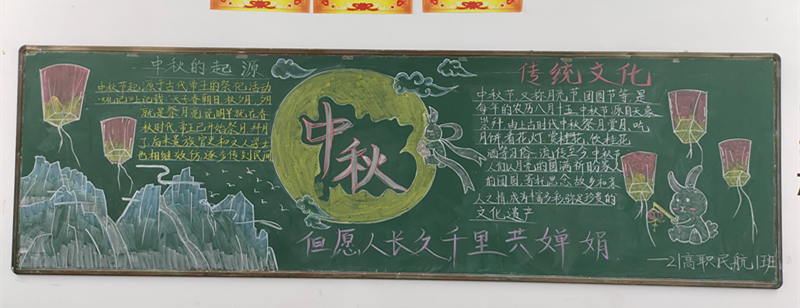 中秋的起源
中秋节起源于古代帝王的祭祀活动
礼记上记载 天子春朝日,秋夕月,夕月
就是祭月亮,说明早就在春
秋时代,帝王已开始祭月、拜月
了后来贵族官吏和文人学士
也相继效仿,逐步传到民间
中秋
传统文化
中秋节 又称月亮节 团圆节等 是
每年的农历八月十五 中秋节源自天象
崇拜 由上古时代中秋祭月 赏月、吃
月饼 看花灯 赏桂花、饮桂花
酒等习俗 流传至今 中秋节
人们以月亮的圆满祈盼家人
的团圆 寄托思念故乡和亲
人之情,成为丰富多彩,弥足珍贵的
文化遗产
但愿人长久千里共婵娟
—21高职民航1班